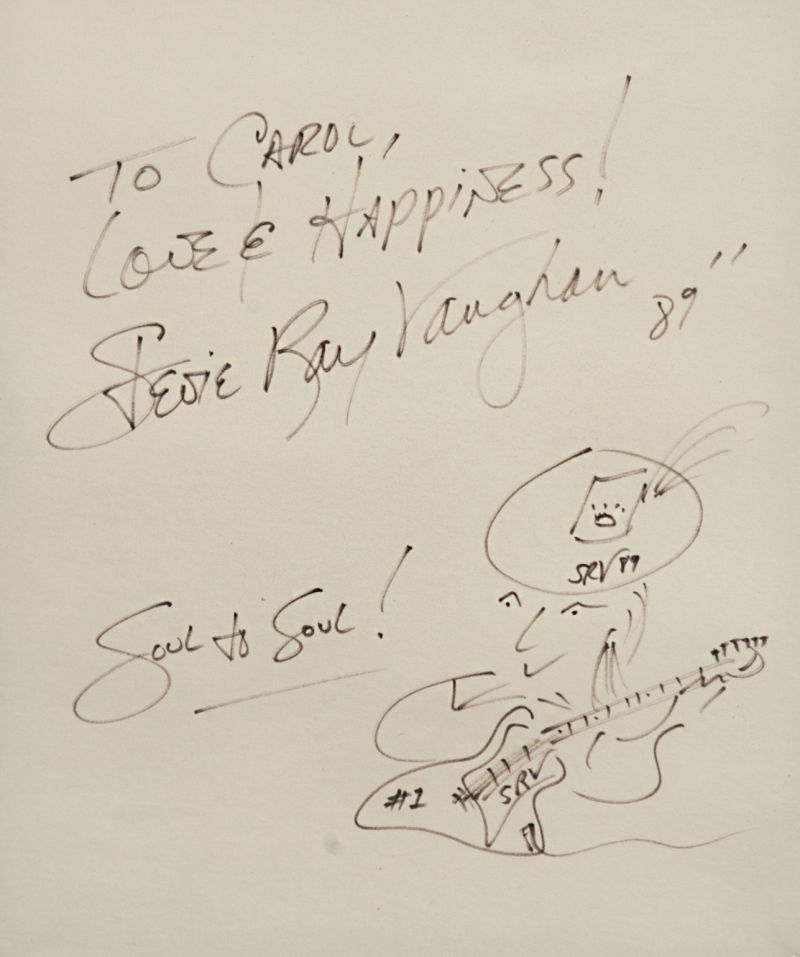 TO CAROL,
LOVE & HAPPINESS!
Stevie Ray Vaughan 89"
SRV 89
SOUL to SOUL!
#1
SRV